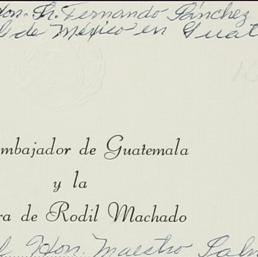 Hon. Sr. Fernando Sánchez
de México en Guat
mbajador de Guatemala
y la
ra de Rodil Machado
Hon. Maestro Salv